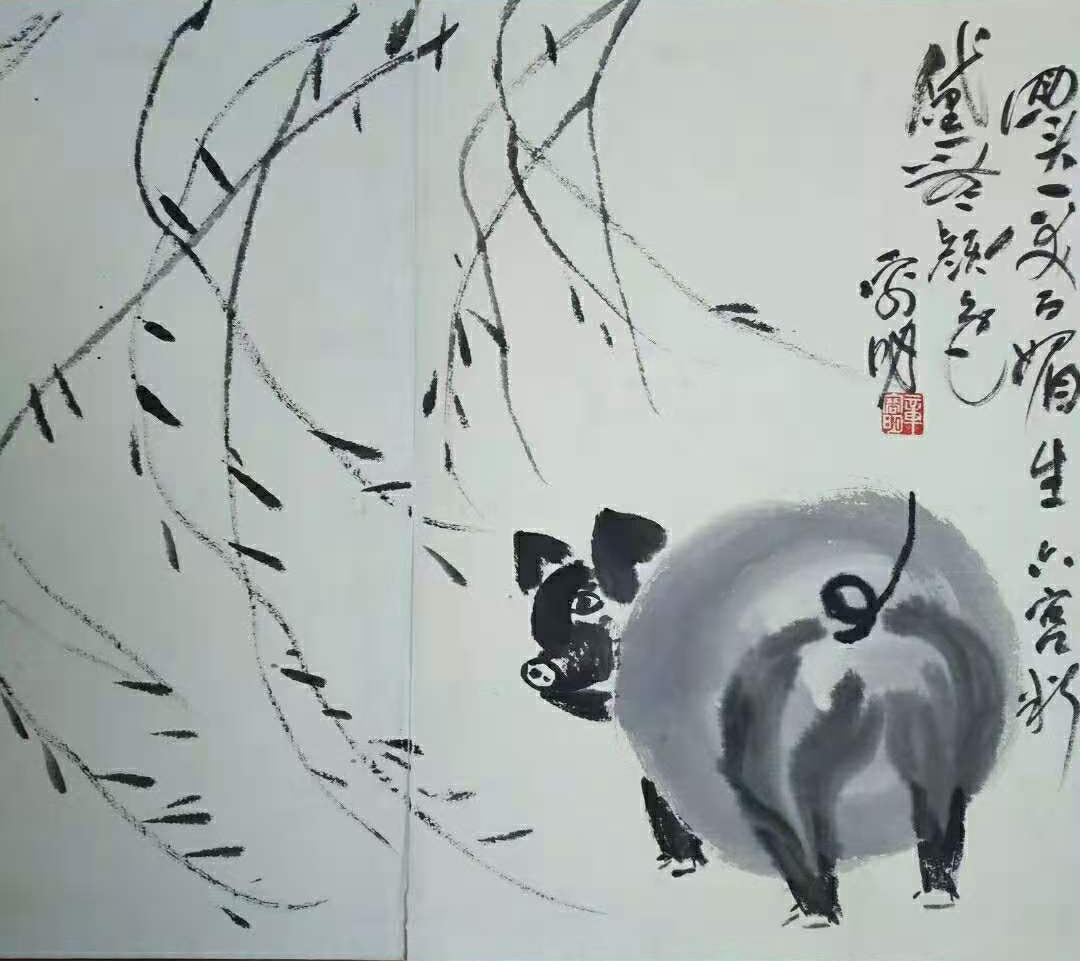 回头一笑百媚生六宫粉
黛无颜色
明